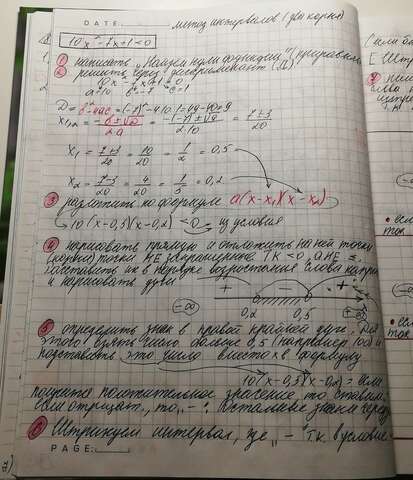 DATE:
метод интервалов (два корня)
10x²-7x+1<0
① написать „Найдем нули функции" (приравнив.
② решить через дискриминант (Д)
10x²-7x+1=0
a=10 b=-7 c=1
D=b²-4ac=(-7)²-4·10·1=49-40=9
x₁,₂=-b±√D/2a=-(-7)±√9/2·10=7±3/20
x₁=7+3/20=10/20=1/2=0,5
x₂=7-3/20=4/20=1/5=0,2
③ разложить по формуле a(x-x₁)(x-x₂)
10(x-0,5)(x-0,2)<0 - из условия
④ нарисовать прямую и отложить на ней точки
(корни) точки НЕ закрашенные т.к <0, а НЕ ≤.
расставить их в порядке возрастания слева направо
и нарисовать дуги
+ - +
-∞ 0,2 0,5 +∞
⑤ определить знак в правой крайней дуге. Для
этого взять число больше 0,5 (например 100) и
подставить это число вместо x в формулу
10(x-0,5)(x-0,2) - если
получится положительное значение, то ставим
если отрицат., то „-". Остальные знаки черед
⑥ Штрихуем интервал, где „-" т.к в условие
PAGE: